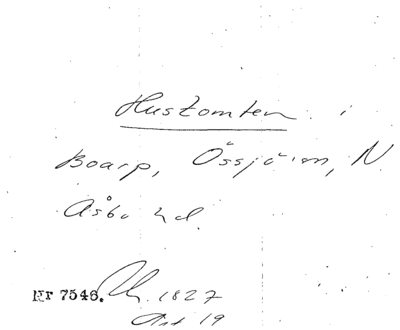 Hustomten i
Boarp, Össjö sn, N
Åsbo hd.
Nr 7546. 1827
19